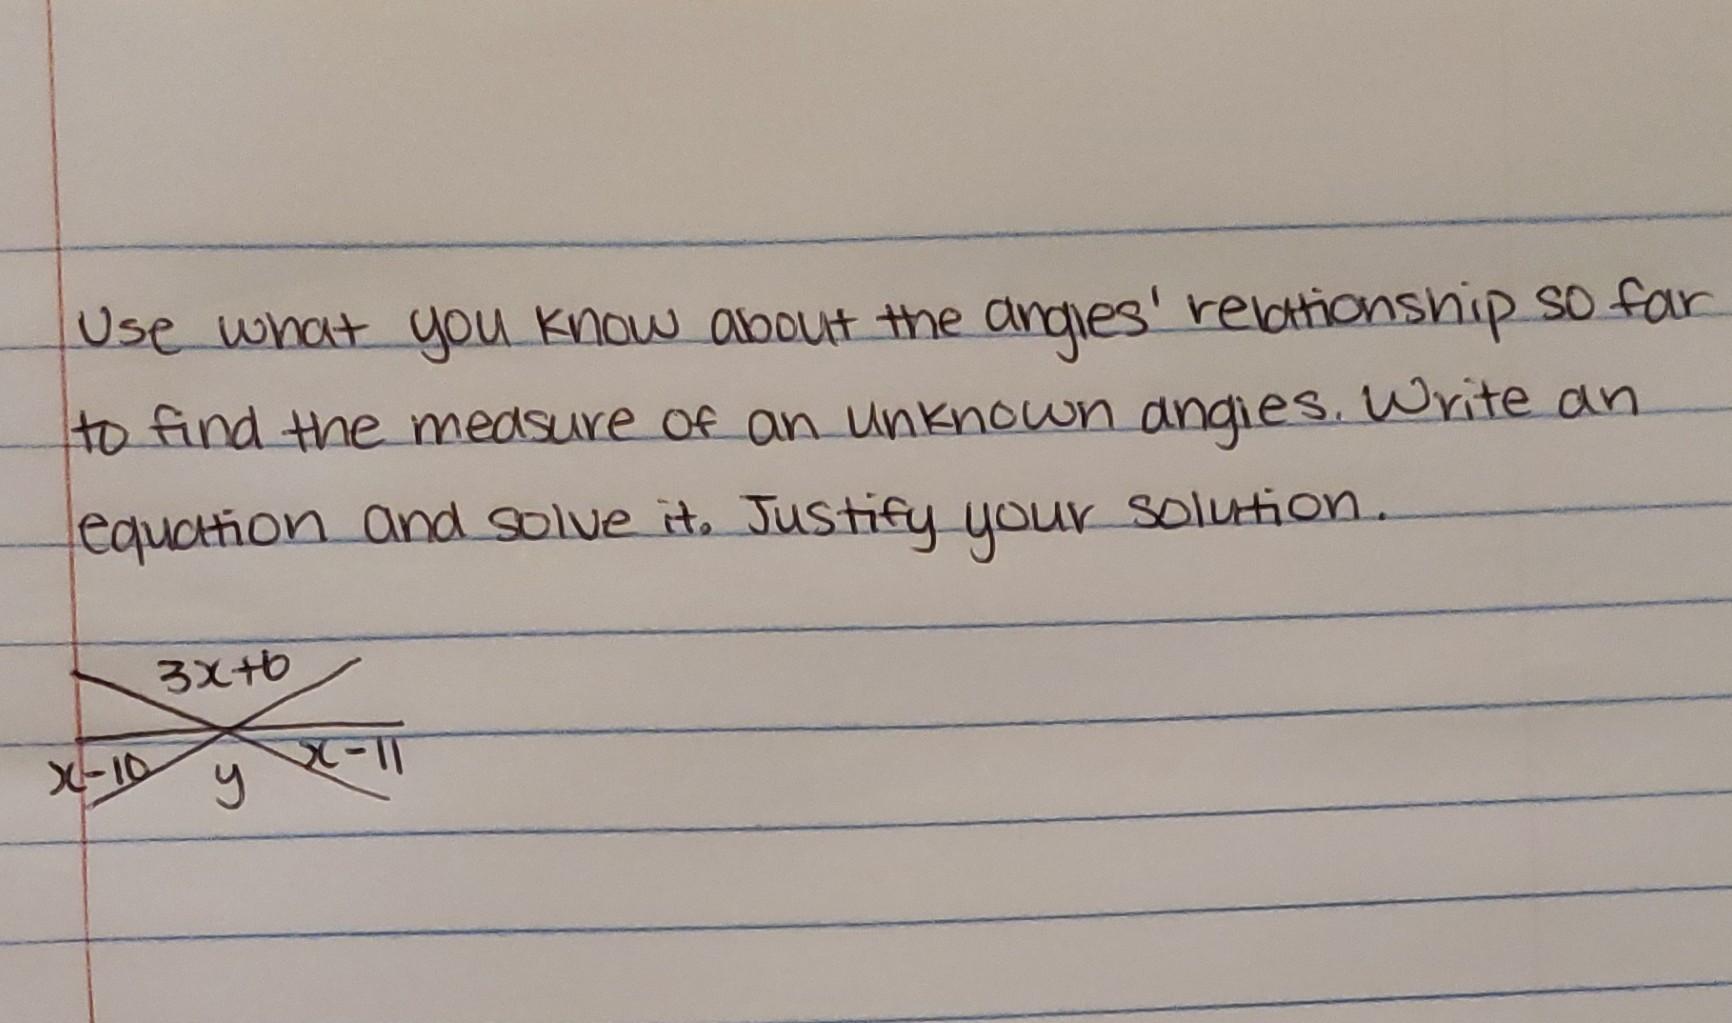 Use what you know about the angles' relationship so far
to find the measure of an unknown angles. Write an
equation and solve it. Justify your solution.
3x+6
x-10 y x-11